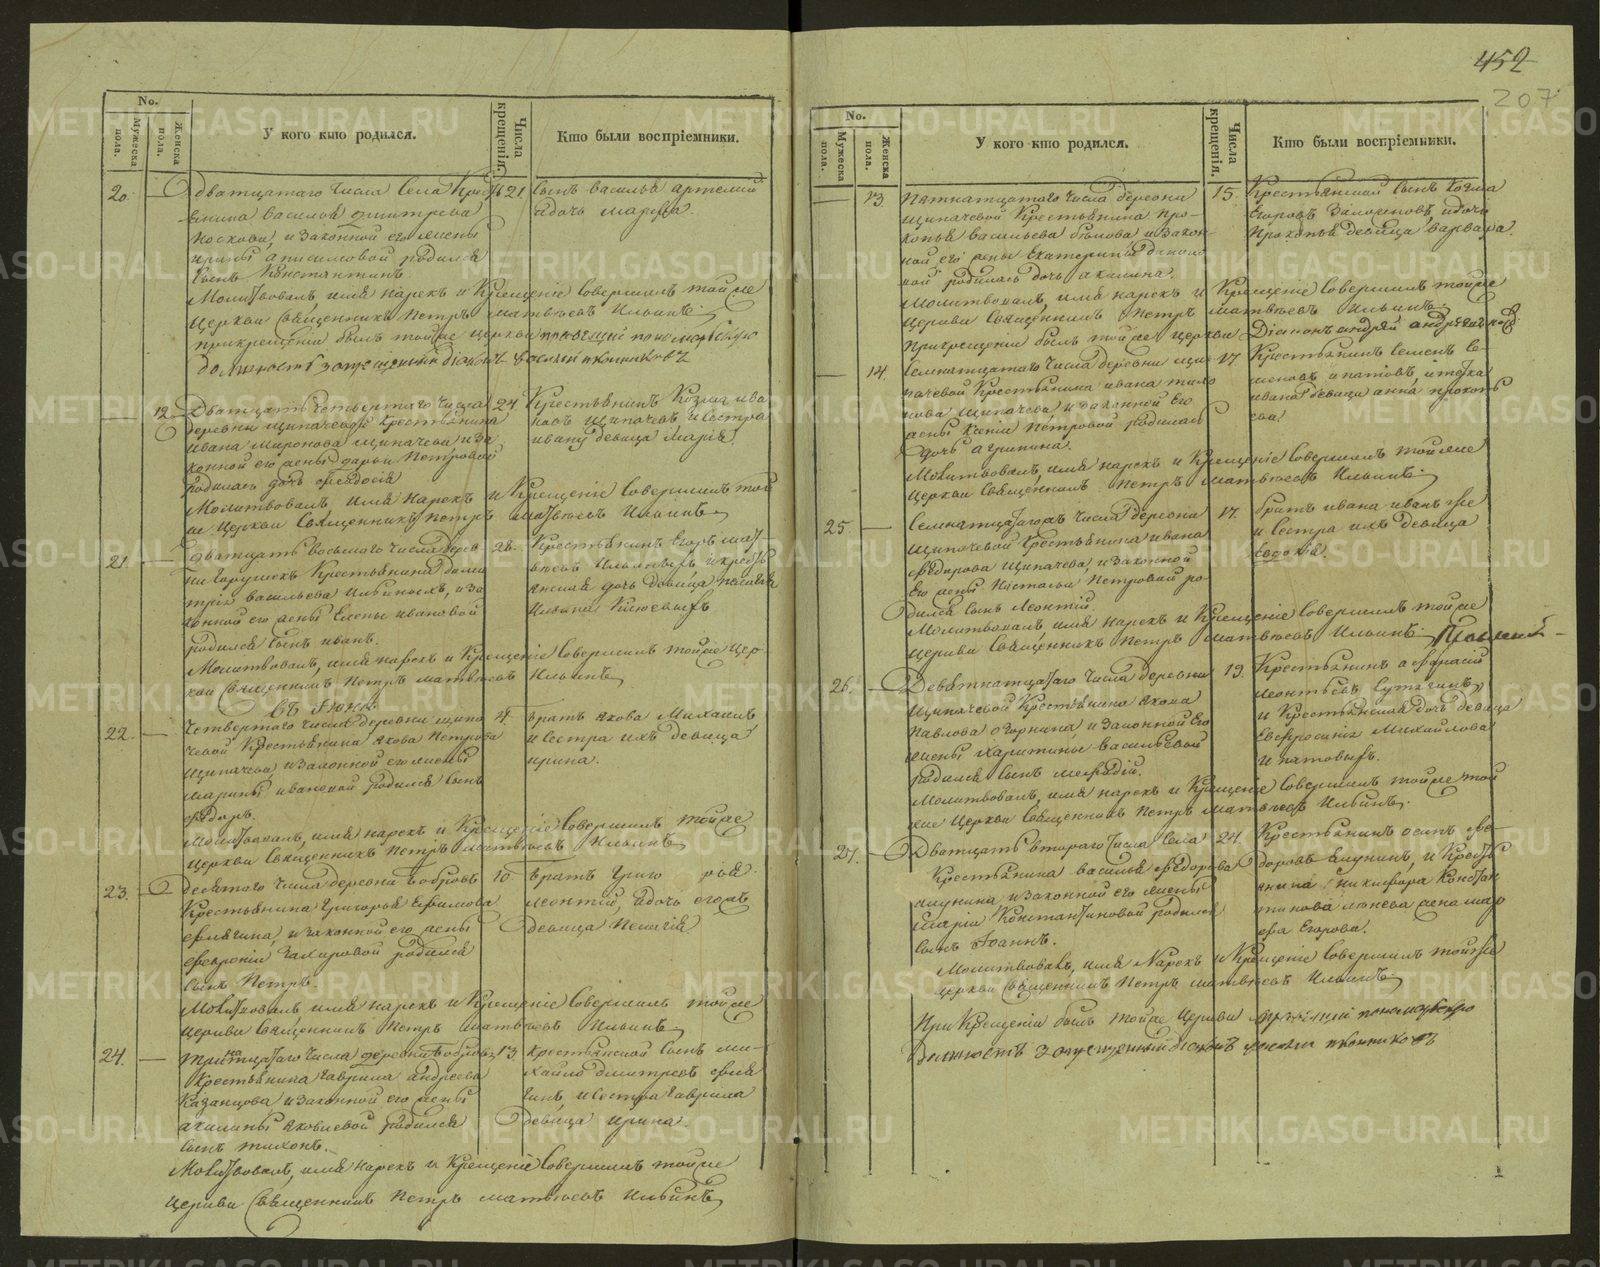 452
207
No.
Мужеска пола.
Женска пола.
У кого кто родился.
Числа крещенія.
Кто были воспріемники.
20.
Дватцатаго Числа Села Крес
21.
сынъ василья артемий
янина василья дмитрева
и дочь марѳа.
Носкова, и законной его жены
ирины анисимовой родился
сынъ Константинъ.
Молитвовалъ, имя нарекъ и Крещеніе Совершилъ тойже
Церкви Священникъ Петръ матвѣевъ Ильинъ
прикрещеніи былъ тойже церкви
должность запрещенный діяконъ василий
12
Дватцать четвертаго Числа
24.
Крестьянинъ Козма ива
деревни щипачевой Крестьянина
новъ щипачевъ и сестра
ивана миронова щипачева и за
ивану девица Марія.
конной его жены дарьи Петровой
родилась дочь ѳеодосія
Молитвовалъ, имя нарекъ и Крещеніе Совершилъ той
же Церкви Священникъ Петръ матвѣевъ Ильинъ
21.
Дватцать восьмаго Числа дерев
28.
Крестьянинъ Егоръ мат
ни Горушекъ Крестьянина дми
трія васильева Ильиныхъ, и за
янская дочь девица
конной его жены Елены ивановой
родился сынъ иванъ.
Молитвовалъ, имя нарекъ и Крещеніе Совершилъ тойже Цер-
кви Священникъ Петръ матвѣевъ Ильинъ
въ Іюнѣ
22.
Четвертаго Числа деревни щипа
4.
братъ якова Михаилъ
чевой Крестьянина якова Петрова
и сестра ихъ девица
щипачева, и законной его жены
ирина.
марины ивановой родился сынъ
ѳедоръ.
Молитвовалъ, имя нарекъ и Крещеніе Совершилъ тойже
Церкви Священникъ Петръ матвѣевъ Ильинъ
23.
десятаго Числа деревни бобровъ
10.
братъ Григо рья
Крестьянина Григорья Ефимова
леонтій, и дочь егоръ
Флягина, и законной его жены
девица Пелагія
ѳевроніи Захаровой родился
сынъ Петръ.
Молитвовалъ, имя нарекъ и Крещеніе Совершилъ тойже
Церкви Священникъ Петръ матвѣевъ Ильинъ
24.
тринатцатаго Числа деревни бобровъ
13
крестьянской сынъ ми-
Крестьянина Гаврила андреева
хайло дмитревъ фля
Казанцова и законной его жены
гинъ, и сестра Гаврила
акилины яковлевой родился
девица ирина.
сынъ тихонъ.
Молитвовалъ, имя нарекъ и Крещеніе Совершилъ тойже
Церкви Священникъ Петръ матвѣевъ Ильинъ
No.
Мужеска пола.
Женска пола.
У кого кто родился.
Числа крещенія.
Кто были воспріемники.
13
Пятнатцатаго Числа деревни
15.
Крестьянской сынъ Козма
щипачевой Крестьянина про-
Егоровъ и дочь
копья васильева бѣлова и закон-
Прокопья девица варвара.
ной его жены Екатерины
вой родилась дочь акилина.
Молитвовалъ, имя нарекъ и Крещеніе Совершилъ тойже
Церкви Священникъ Петръ матвѣевъ Ильинъ.
Прикрещеніи былъ тойже церкви Діаконъ андрей
14.
Семнатцатаго Числа деревни щи
17.
Крестьянинъ Семенъ се-
пачевой Крестьянина ивана
меновъ ипатовъ, и тетка
щипачева, и законной Его
ивана девица анна прокопь
жены Ксеніи Петровой родилась
ева.
дочь агрипина.
Молитвовалъ, имя нарекъ и Крещеніе Совершилъ тойже
Церкви Священникъ Петръ матвѣевъ Ильинъ
25.
Семнатцатаго Числа деревни
17.
братъ ивана иванъ же
Щипачевой Крестьянина ивана
и сестра ихъ девица
ѳедорова Щипачева, и законной
Евдокія.
Его жены Настасьи Петровой ро-
дился сынъ Леонтій.
Молитвовалъ имя нарекъ и Крещеніе Совершилъ тойже
Церкви Священникъ Петръ матвѣевъ Ильинъ
26.
Девятнатцатаго Числа деревни
19.
Крестьянинъ аѳанасій
Щипачевой Крестьянина якова
леонтьевъ
Павлова огорнина, и законной Его
и Крестьянская дочь девица
жены Харитины васильевой
Евфросинія Михайлова
родился сынъ меѳодій.
ипатовыхъ.
Молитвовалъ, имя нарекъ и Крещеніе Совершилъ тойже той
же Церкви Священникъ Петръ матвѣевъ Ильинъ.
27.
Дватцать втораго Числа Села
24.
Крестьянинъ осипъ ѳе-
Крестьянина василья ѳедорова
доровъ и Кресть
и законной его жены
янина Никифора Констан
Маріи Константиновой родился
тинова жена мар
сынъ Іоаннъ.
ѳа Егорова.
Молитвовалъ, имя Нарекъ и Крещеніе Совершилъ тойже
Церкви Священникъ Петръ матвѣевъ Ильинъ
При Крещеніи былъ тойже Церкви
должность запрещенный діяконъ